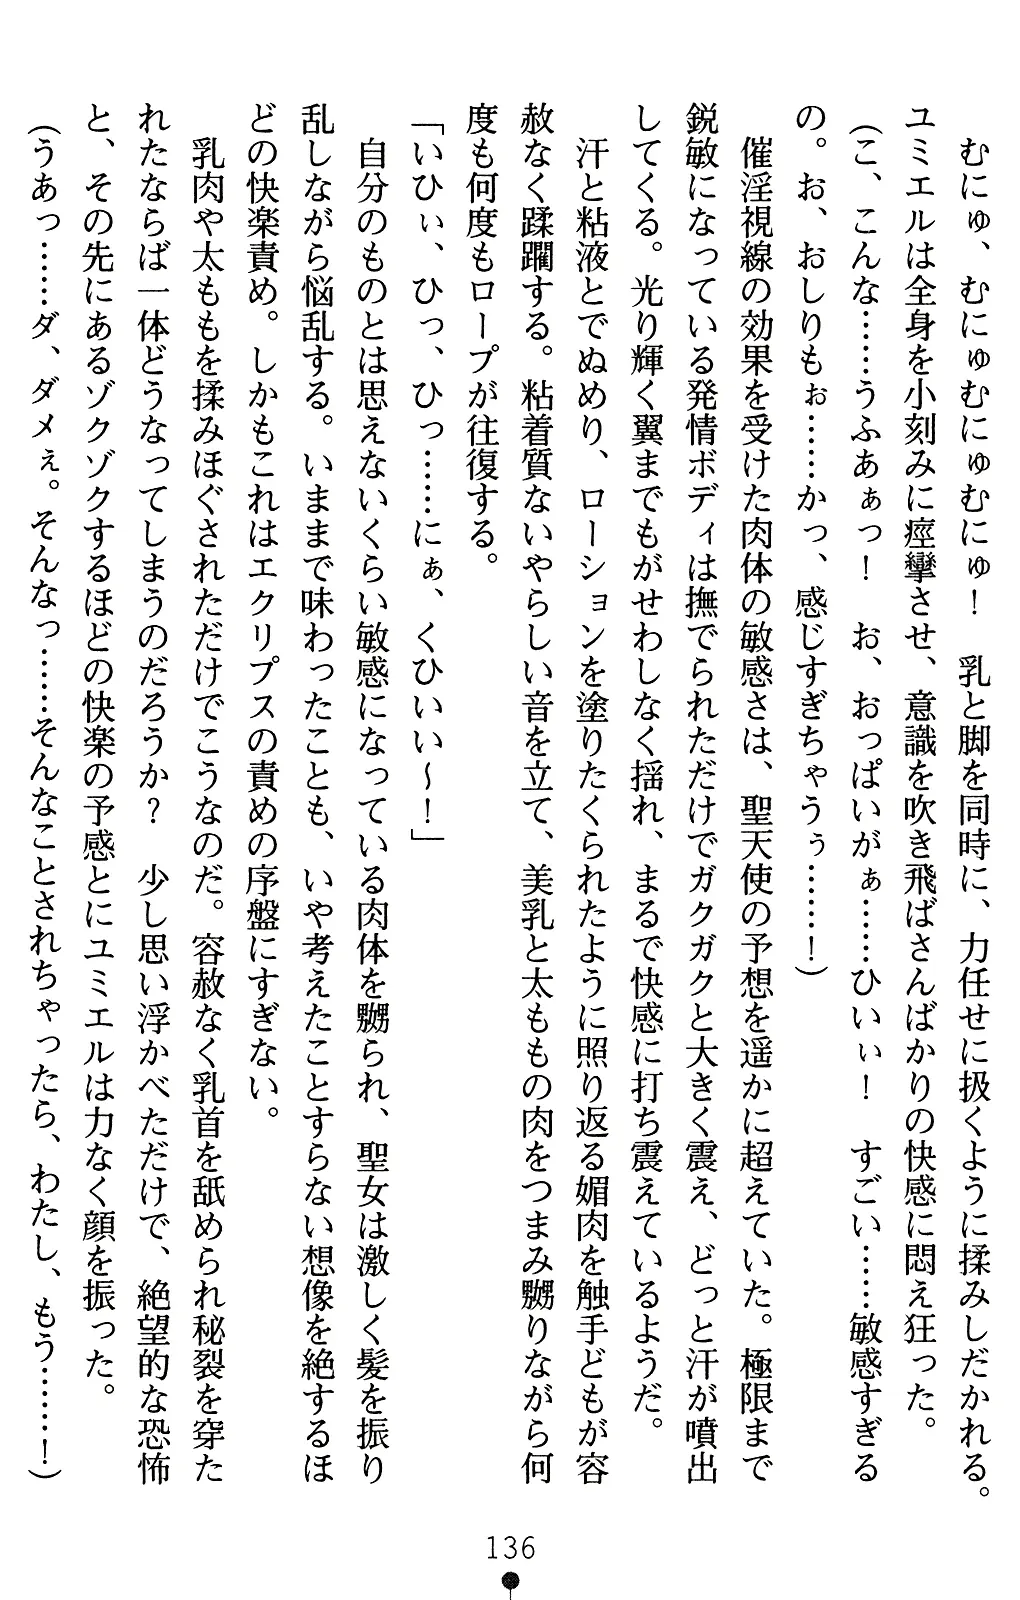 むにゅ、むにゅむにゅむにゅ！　乳と脚を同時に、力任せに扱くように揉みしだかれる。
ユミエルは全身を小刻みに痙攣させ、意識を吹き飛ばさんばかりの快感に悶え狂った。
（こ、こんな……うふあぁっ！　お、おっぱいがぁ……ひいぃ！　すごい……敏感すぎる
の。お、おしりもぉ……かっ、感じすぎちゃうぅ……！）
催淫視線の効果を受けた肉体の敏感さは、聖天使の予想を遥かに超えていた。極限まで
鋭敏になっている発情ボディは撫でられただけでガクガクと大きく震え、どっと汗が噴出
してくる。光り輝く翼までもがせわしなく揺れ、まるで快感に打ち震えているようだ。
汗と粘液とでぬめり、ローションを塗りたくられたように照り返る媚肉を触手どもが容
赦なく蹂躙する。粘着質ないやらしい音を立て、美乳と太ももの肉をつまみ嬲りながら何
度も何度もロープが往復する。
「いひぃ、ひっ、ひっ……にぁ、くひいい～！」
自分のものとは思えないくらい敏感になっている肉体を嬲られ、聖女は激しく髪を振り
乱しながら悩乱する。いままで味わったことも、いや考えたことすらない想像を絶するほ
どの快楽責め。しかもこれはエクリプスの責めの序盤にすぎない。
乳肉や太ももを揉みほぐされただけでこうなのだ。容赦なく乳首を舐められ秘裂を穿た
れたならば一体どうなってしまうのだろうか？　少し思い浮かべただけで、絶望的な恐怖
と、その先にあるゾクゾクするほどの快楽の予感とにユミエルは力なく顔を振った。
（うあっ……ダ、ダメぇ。そんなっ……そんなことされちゃったら、わたし、もう……！）
136